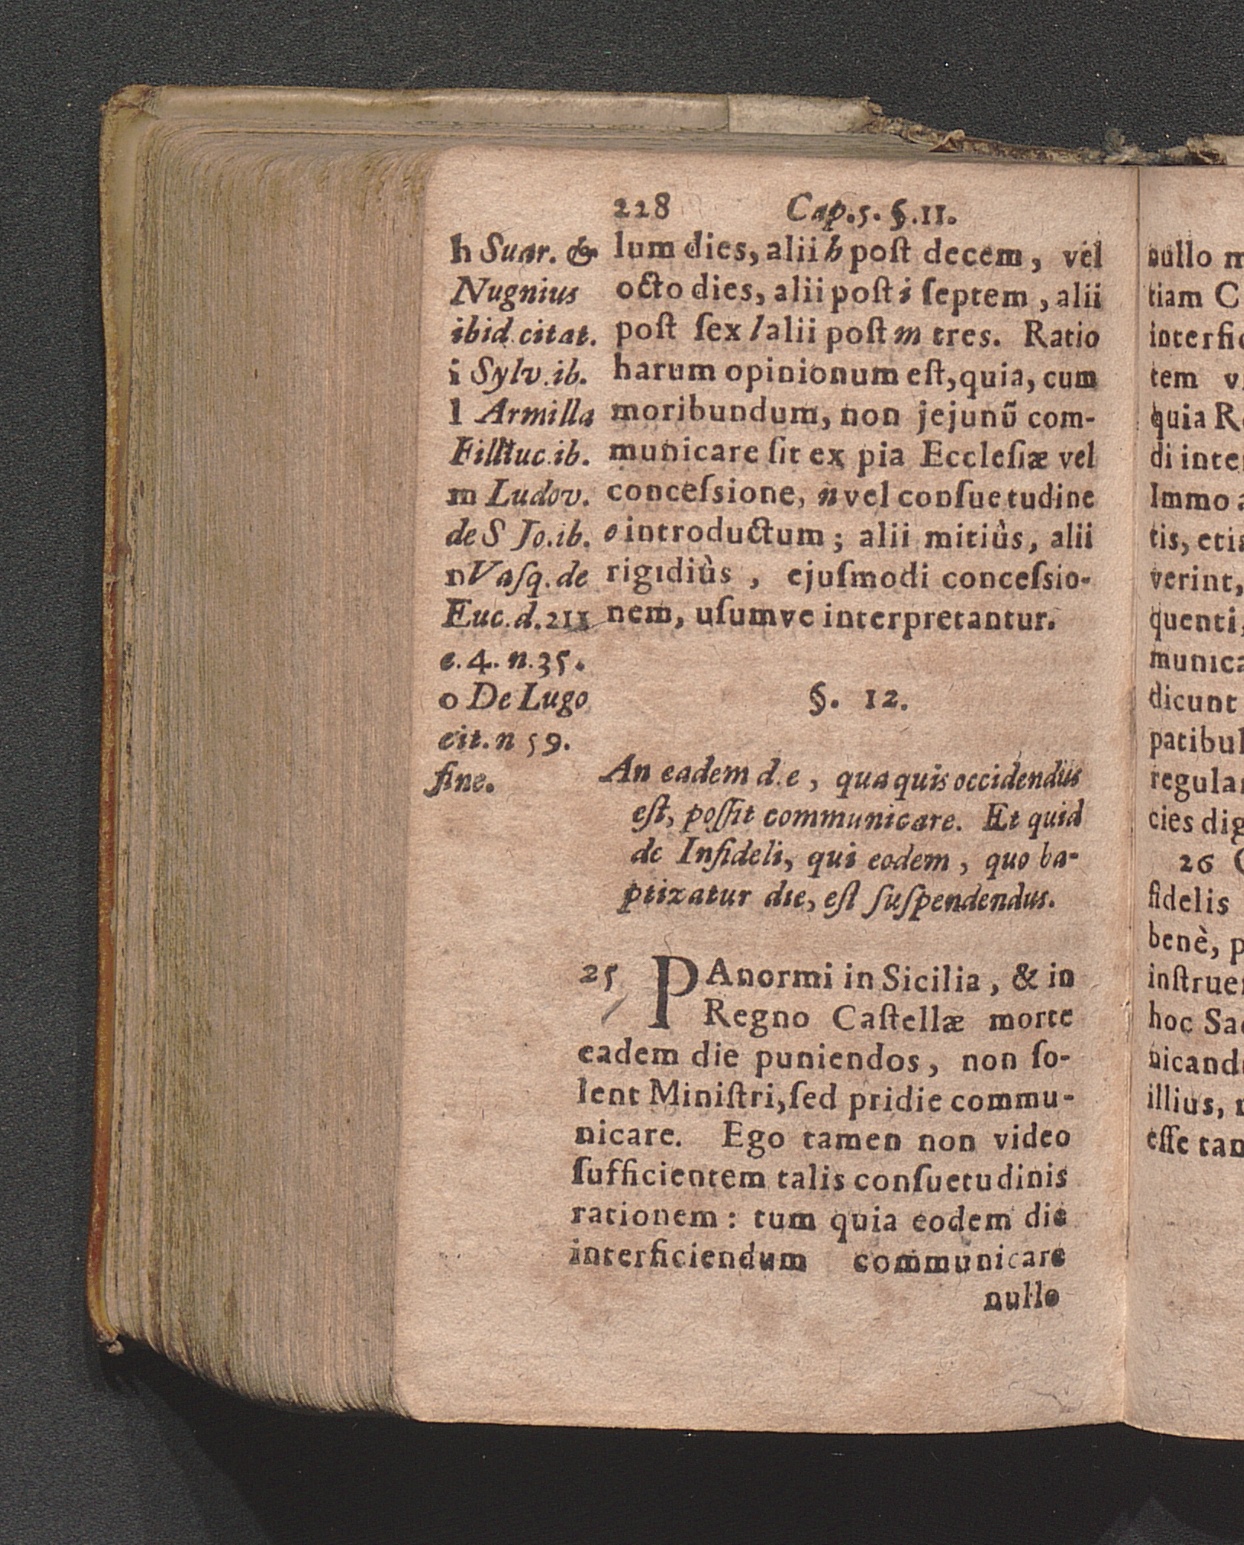 228 Cap.5. §.11.
h Suar. &
Nugnius
ibid.citat.
i Sylv.ib.
l Armilla
Filliuc.ib.
m Ludov.
de S Jo.ib.
n Vaſq.de
Euc.d.211
c.4. n.35.
o De Lugo
cit. n 59.
fine.
lum dies, alii h poſt decem, vel
octo dies, alii poſt i ſeptem, alii
poſt ſex l alii poſt m tres. Ratio
harum opinionum eſt, quia, cum
moribundum, non jejunũ com-
municare ſit ex pia Eccleſiæ vel
conceſsione, n vel conſuetudine
o introductum; alii mitiùs, alii
rigidiùs, ejuſmodi conceſsio-
nem, uſumve interpretantur.
§. 12.
An eadem d.e, qua quis occidendus
eſt, poſſit communicare. Et quid
de Infideli, qui eodem, quo ba-
ptizatur die, eſt ſuſpendendus.
25 PAnormi in Sicilia, & in
Regno Caſtellæ morte
eadem die puniendos, non ſo-
lent Miniſtri, ſed pridie commu-
nicare. Ego tamen non video
ſufficientem talis conſuetudinis
rationem: tum quia eodem die
interficiendum communicare
nullo
nullo
tiam
interfi
tem
quia
di inte
Immo
tis, eti
verint,
quenti,
munica
dicunt
patibul
regular
cies dig
26
fidelis
benè,
inſtrue
hoc
nicand
illius,
eſſe tan